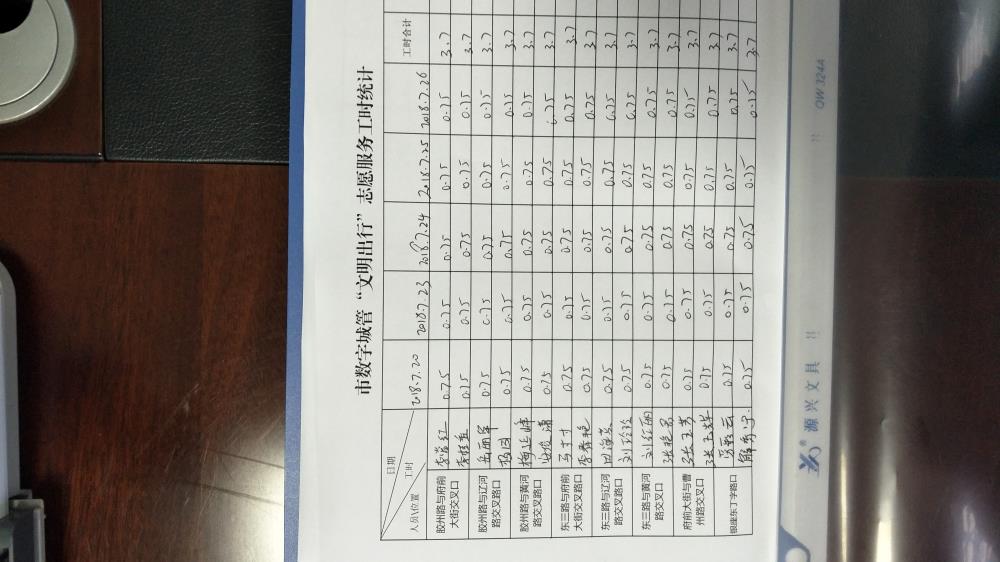 市数字城管“文明出行”志愿服务工时统计
日期
工时
人员\位置
2018.7.20 2018.7.23 2018.7.24 2018.7.25 2018.7.26 工时合计
胶州路与府前大街交叉口
0.75 0.75 0.75 0.75 0.75 3.7
0.75 0.75 0.75 0.75 0.75 3.7
胶州路与辽河路交叉路口
0.75 0.75 0.75 0.75 0.75 3.7
0.75 0.75 0.75 0.75 0.75 3.7
胶州路与黄河路交叉路口
0.75 0.75 0.75 0.75 0.75 3.7
0.75 0.75 0.75 0.75 0.75 3.7
东三路与府前大街交叉口
0.75 0.75 0.75 0.75 0.75 3.7
李春艳 0.75 0.75 0.75 0.75 0.75 3.7
东三路与辽河路交叉口
田海英 0.75 0.75 0.75 0.75 0.75 3.7
刘玲玲 0.75 0.75 0.75 0.75 0.75 3.7
东三路与黄河路交叉口
刘红丽 0.75 0.75 0.75 0.75 0.75 3.7
0.75 0.75 0.75 0.75 0.75 3.7
府前大街与曹州路交叉口
张玉芳 0.75 0.75 0.75 0.75 0.75 3.7
张玉辉 0.75 0.75 0.75 0.75 0.75 3.7
银座东丁字路口
0.75 0.75 0.75 0.75 0.75 3.7
0.75 0.75 0.75 0.75 0.75 3.7
源兴文具
QW 324A